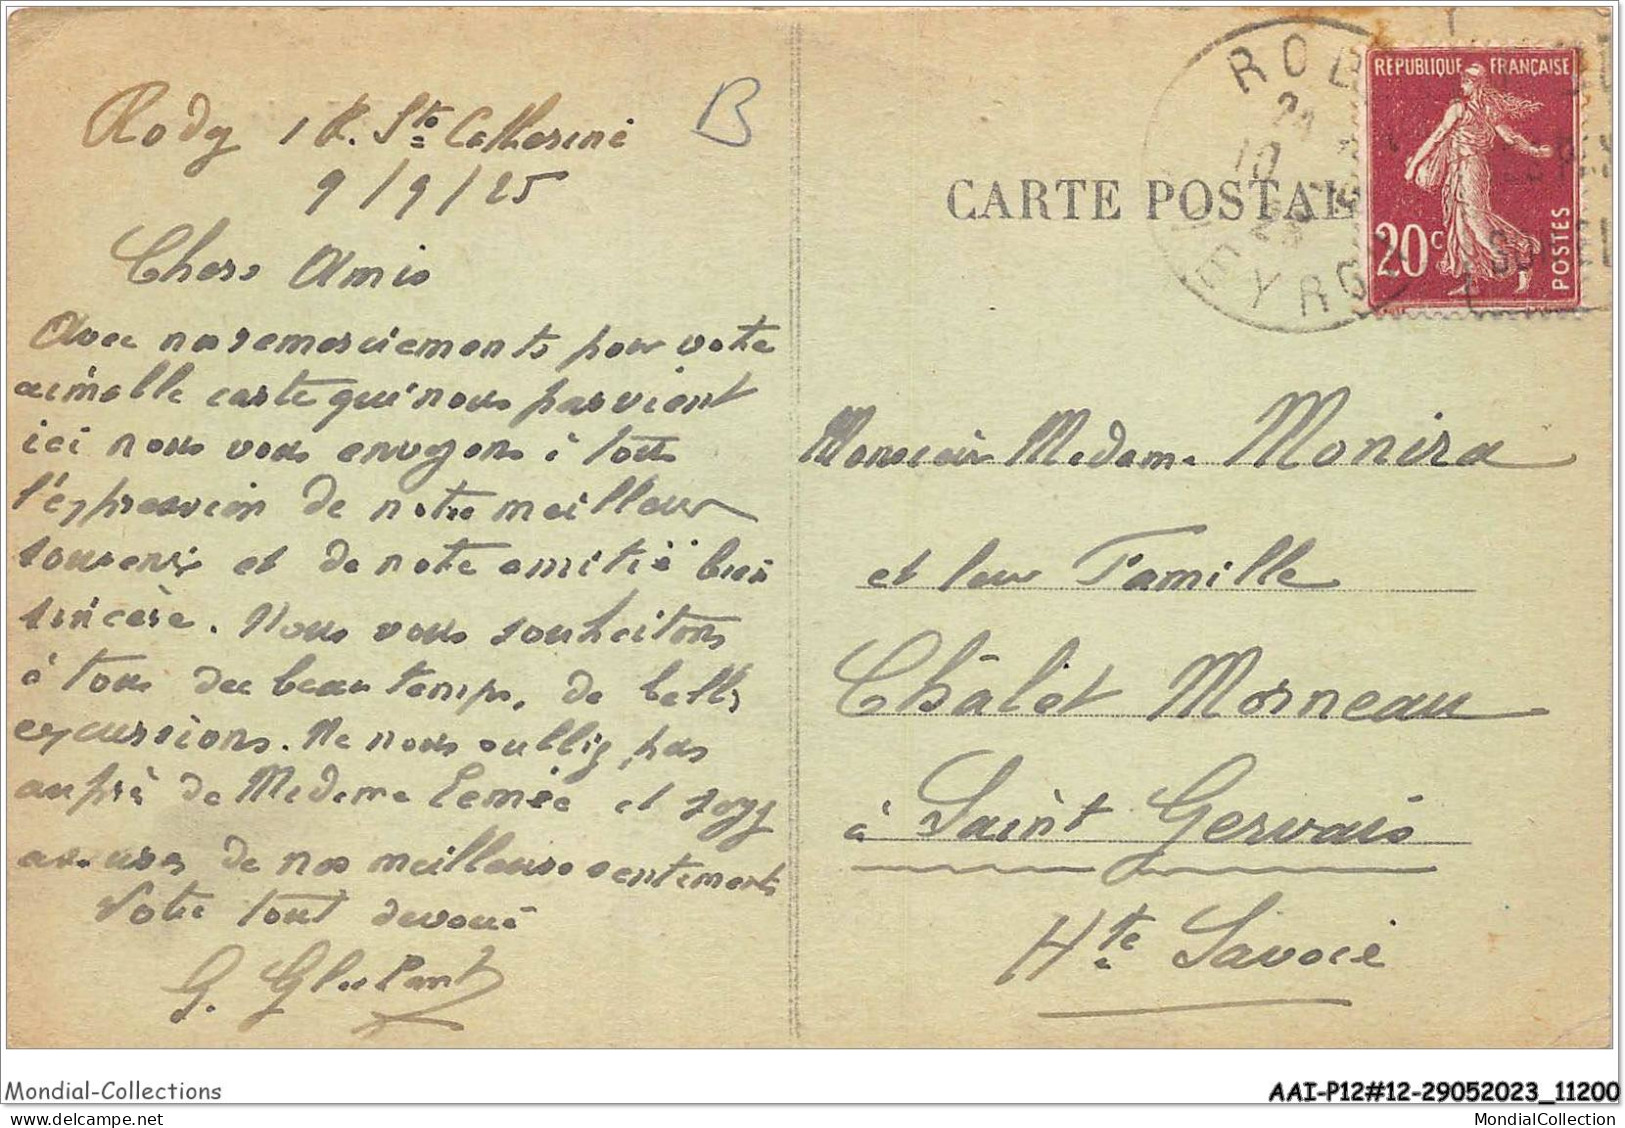 1 R. Ste Catherine
9/9/25
B
Chers Amis
Avec nos remerciements pour votre
aimable carte qui nous parvient
ici nous vous envoyons à tous
l'expression de notre meilleur
souvenir et de notre amitié bien
sincère. Nous vous souhaitons
à tous du beau temps, de belles
excursions. Ne nous oubliez pas
auprès de Madame Lemée et soyez
assurés de nos meilleurs sentiments
Votre tout dévoué
G.
CARTE POSTAL
REPUBLIQUE FRANÇAISE
20c
POSTES
Monsieur Madame Monira
et leur Famille
Châlet Morneau
à Saint Gervais
Hte Savoie
Mondial-Collections
AAI-P12#12-29052023_11200
MondialCollection